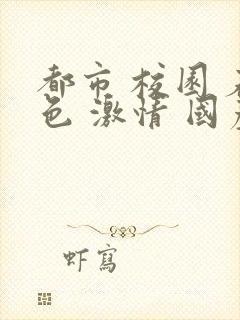 都市 校园
色 激情 國
虾寫